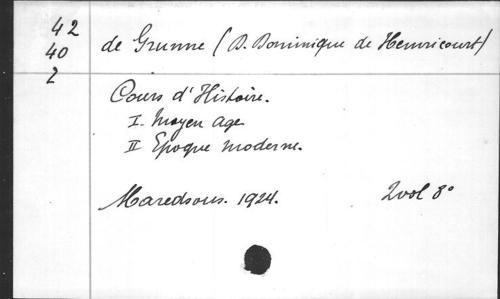 42
40
2
de Grunne (D. Dominique de Hemricourt)
Cours d'Histoire.
I. Moyen age
II Epoque moderne.
Maredsous. 1924. 2 vol 8°